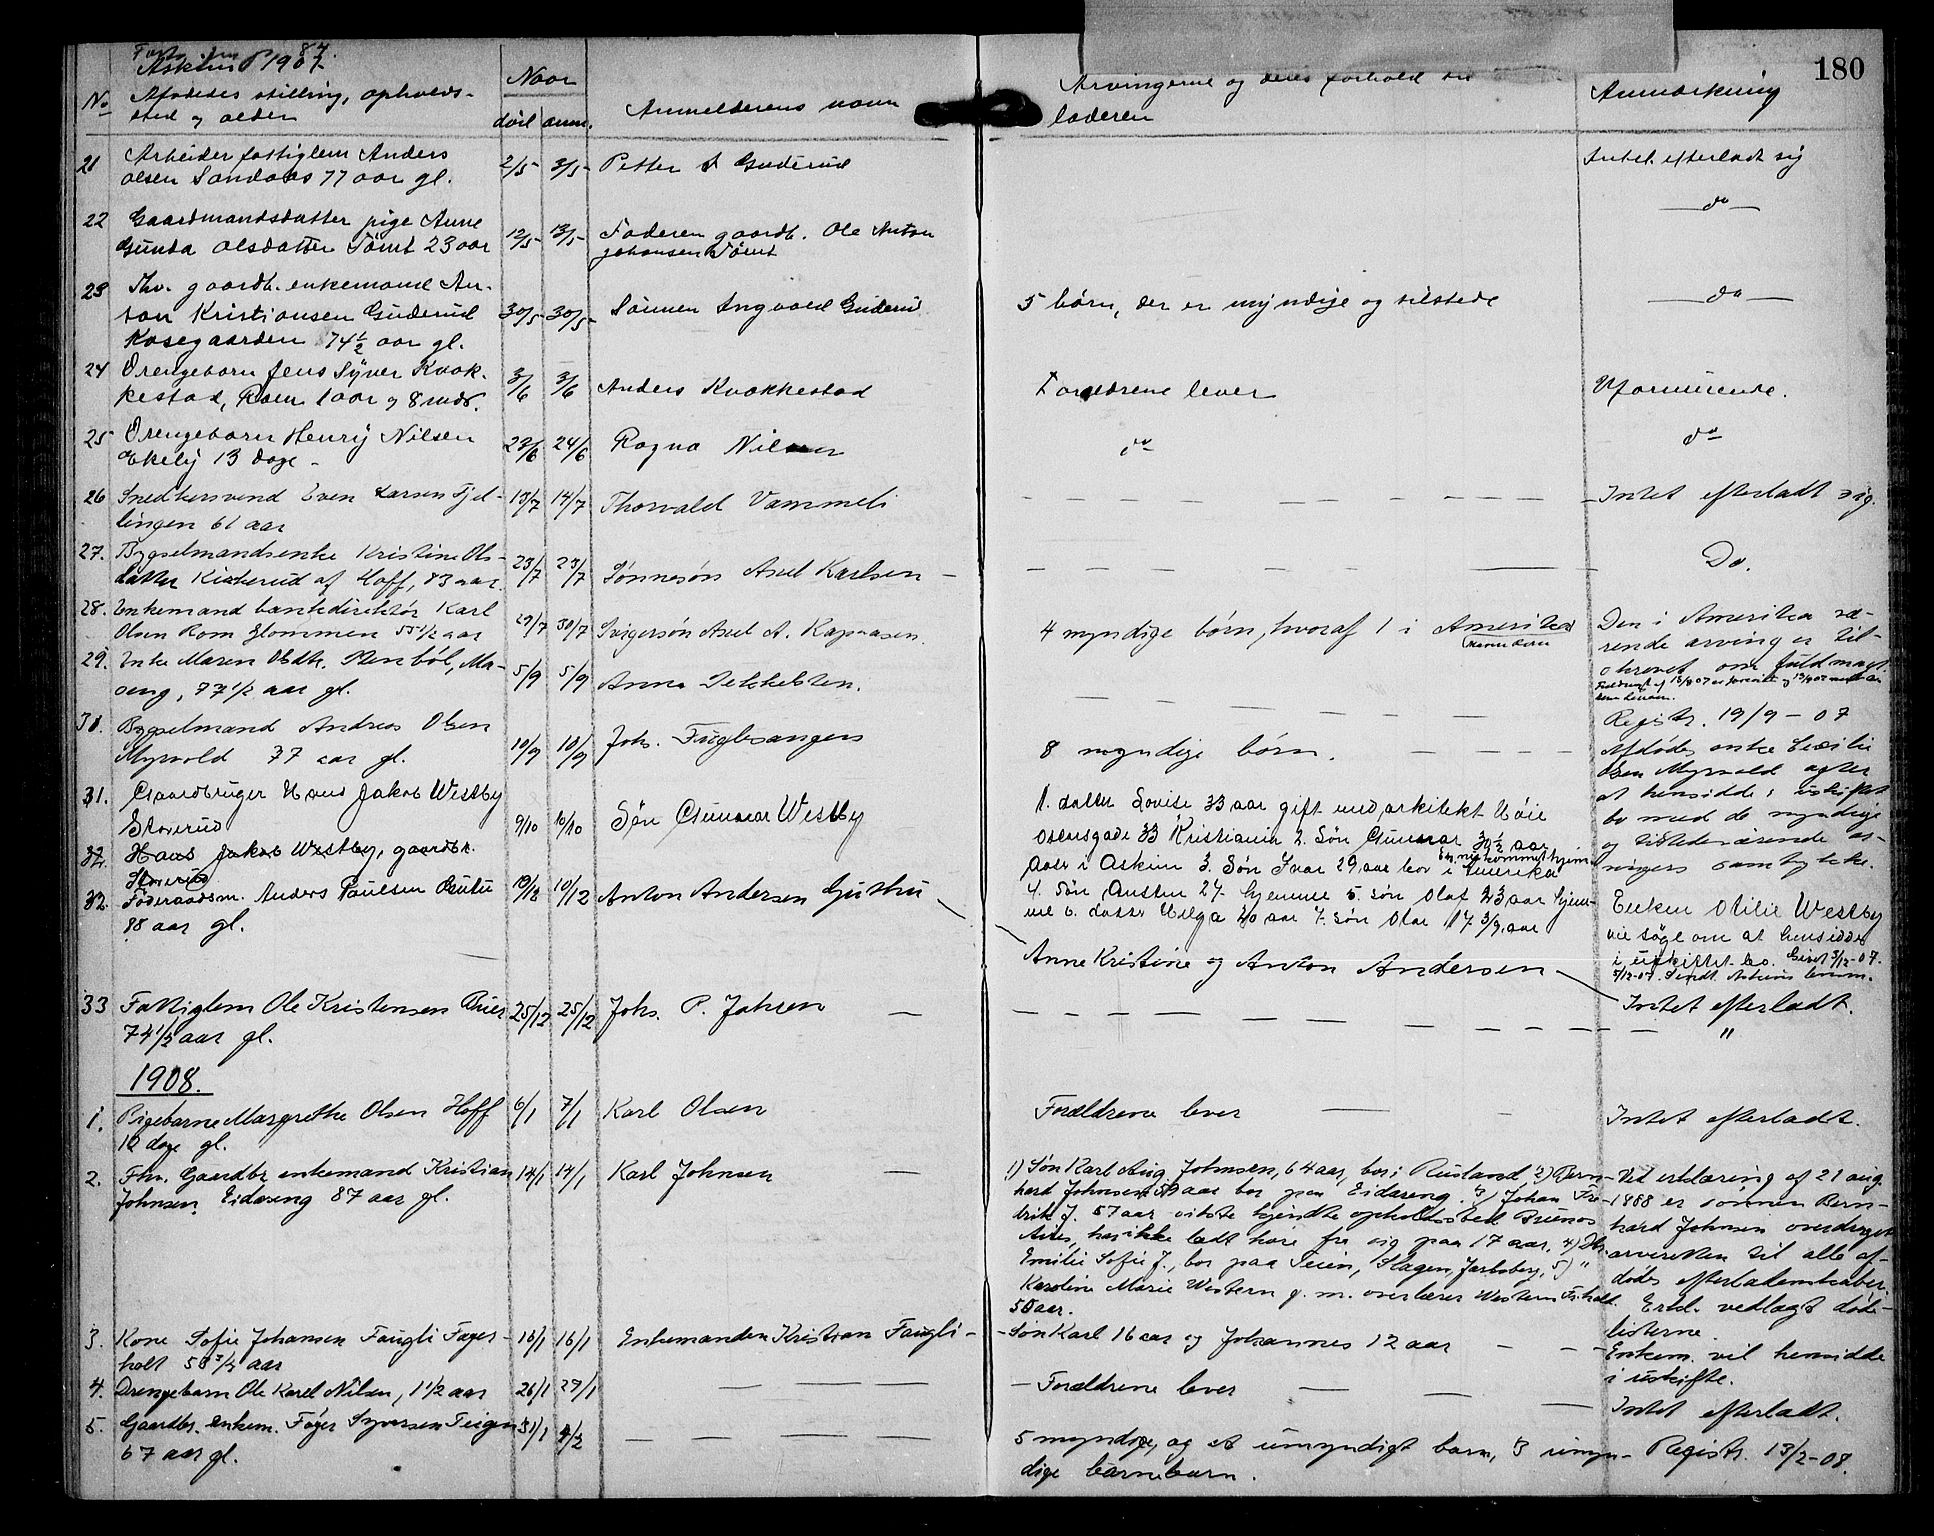 180
Askim 1907
No Afdødes stilling, opholds-
sted og alder
Naar
død anm.
Anmelderens navn
Arvingerne og deres forhold til
laderen
Anmærkning
21 Arbeider fattiglem Anders
Olsen Sandaas 77 aar gl.
2/5 3/5 Petter Guderud
Intet efterladt sig
22 Gaardmandsdatter pige Anne
Gunda Olsdatter Tömt 23 aar
12/5 13/5 Faderen gaardb. Ole Anton
Johansen Tömt
do
23 Fhv. gaardb. enkemand An-
ton Kristiansen Guderud
Kosegaarden 74 1/2 aar gl.
30/5 30/5 Sønnen Ingvald Guderud
5 børn, der er myndige og tilstede
do
24 Drengebarn Jens Syver Kvak-
kestad, Rom 1 aar og 8 mdr.
3/6 3/6 Anders Kvakkestad
Forældrene lever
Uformuende.
25 Drengebarn Henry Nilsen
Ekely 13 dage
23/6 24/6 Ragna Nilsen
do
do
26 Snedkersvend Even Larsen Fjel-
lingen 61 aar
13/7 14/7 Thorvald Vammeli
Intet efterladt sig.
27. Bygselmandsenke Kristine Ols-
datter Kisterud af Hoff, 83 aar.
23/7 23/7 Sønnesøn Axel Karlsen
Do.
28. Enkemand bankdirektør Karl
Olsen Rom Glommen 55 1/2 aar
29/7 30/7 Svigersøn Axel A. Kapaasen
4 myndige børn, hvoraf 1 i Amerika
Den i Amerika væ-
rende arving er til-
skrevet om fuldmagt.
29. Enke Maren Olsdtr. Stenbøl, Ma-
seng, 77 1/2 aar gl.
5/9 5/9 Anna Dekkelsten.
Registr. 19/9-07
30. Bygselmand Andreas Olsen
Myrvold 77 aar gl.
10/9 10/9 Joh. Fuglesangen
8 myndige børn.
Afdødes enke
Olsen Myrvold agter
at hensidde i uskiftet
bo med de myndige
og tilstedeværende ar-
vingers samtykke.
31. Gaardbruger Hans Jakob Westby
Skoverud
9/10 10/10 Søn Gunnar Westby
1. datter Lovise 33 aar gift med arkitekt Höie
Oscarsgade 33 Kristiania 2. Søn Gunnar 30 1/2 aar
Aas i Askim 3. Søn Ivar 29 aar bor i Amerika
Er nu kommet hjem
4. Søn Austen 27 hjemme 5. søn Olaf 23 aar hjem-
me 6. datter Helga 20 aar 7. søn Olav 17 3/4 aar
Enken Otilie Westby
vil søge om at hensidde
i uskiftet bo.
32. Hans Jakob Westby, gaardbr.
Skoverud
32. Føderaadsm. Anders Paulsen Gutu
88 aar gl.
10/12 10/12 Anton Andersen Guthu
Anne Kristine og Anton Andersen
Intet efterladt.
33 Fattiglem Ole Kristensen
74 1/2 aar gl.
25/12 25/12 Johs. P. Jahren
"
1908.
1. Pigebarne Margrethe Olsen Hoff
10 dage gl.
6/1 7/1 Karl Olsen
Forældrene lever
Intet efterladt.
2. Fhv. Gaardbr. enkemand Kristian
Johnsen Eidareng 87 aar gl.
14/1 14/1 Karl Johnsen
1) Søn Karl Aug. Johnsen, 64 aar, bor i Rustand, 2) Bern-
hard Johnsen 59 aar bor paa Eidareng. 3) Johan Fre-
drik J. 57 aar sidste kjendte opholdssted Buenos
Aires, har ikke ladt høre fra sig paa 17 aar. 4) Dtr.
Emilie Sofie J., bor paa Teien, Slagen, Jarlsberg, 5) "
Karoline Marie Western g. m. overlærer Western Fr.hald.
50 aar.
Ved erklæring af 21 aug.
1888 er sønnen Bern-
hard Johnsen overdraget
arveretten til alle af-
dødes efterladenskaber.
Erkl. vedlagt døds-
listerne.
3. Kone Sofie Johansen Faugli Fager-
holt 58 3/4 aar
16/1 16/1 Enkemanden Kristian Faugli
Søn Karl 16 aar og Johannes 12 aar
Enkem. vil hensidde
i uskifte.
4. Drengebarn Ole Karel Nilsen, 1 1/2 aar
26/1 27/1
Forældrene lever
Intet efterladt.
5. Gaardbr. enkem. Föyer Syversen Teigen
67 aar gl.
31/1 4/2
5 myndige, og et umyndigt barn, 3 umyn-
dige barnebarn.
Registr. 13/2-08.